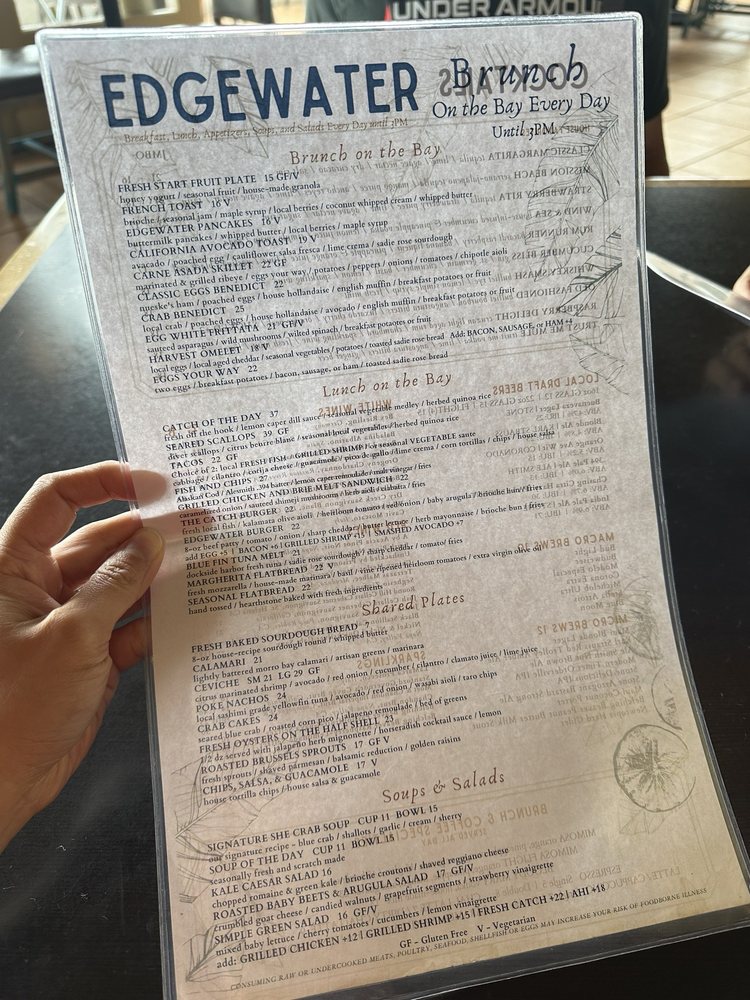 UNDER ARMOUR
EDGEWATER
Brunch
On the Bay Every Day
Until 3PM
Breakfast, Lunch, Appetizers, Soups, and Salads Every Day until 3PM
Brunch on the Bay
FRESH START FRUIT PLATE 15 GF/V
honey yogurt / seasonal fruit / house-made granola
FRENCH TOAST 16 V
brioche / seasonal jam / maple syrup / local berries / coconut whipped cream / whipped butter
EDGEWATER PANCAKES 16 V
buttermilk pancakes / whipped butter / local berries / maple syrup
CALIFORNIA AVOCADO TOAST 19 V
avocado / poached egg / cauliflower salsa fresca / lime crema / sadie rose sourdough
CARNE ASADA SKILLET 22 GF
marinated & grilled ribeye / eggs your way / potatoes / peppers / onions / tomatoes / chipotle aioli
CLASSIC EGGS BENEDICT 22
nueske's ham / poached eggs / house hollandaise / english muffin / breakfast potatoes or fruit
CRAB BENEDICT 25
local crab / poached eggs / house hollandaise / avocado / english muffin / breakfast potatoes or fruit
EGG WHITE FRITTATA 21 GF/V
sauteed asparagus / wild mushrooms / wilted spinach / breakfast potatoes or fruit
HARVEST OMELET 18 V
local eggs / local aged cheddar / seasonal vegetables / potatoes / toasted sadie rose bread Add: BACON, SAUSAGE, or HAM +4
EGGS YOUR WAY 22
two eggs / breakfast potatoes / bacon, sausage, or ham / toasted sadie rose bread
Lunch on the Bay
CATCH OF THE DAY 37
fresh off the hook / lemon caper dill sauce / seasonal vegetable medley / herbed quinoa rice
SEARED SCALLOPS 39 GF
diver scallops / citrus beurre blanc / seasonal local vegetables / herbed quinoa rice
TACOS 22 GF
Choice of 2: local FRESH FISH or GRILLED SHRIMP or seasonal VEGETABLE saute
cabbage / cilantro / cotija cheese / guacamole / pico de gallo / lime crema / corn tortillas / chips / house salsa
FISH AND CHIPS 27
Alaskan Cod / Alesmith .394 batter / lemon caper remoulade / malt vinegar / fries
GRILLED CHICKEN AND BRIE MELT SANDWICH 22
caramelized onion / sauteed shimeji mushrooms / herb aioli / ciabatta / fries
THE CATCH BURGER 22
fresh local fish / kalamata olive aioli / heirloom tomato / red onion / baby arugula / brioche bun / fries
EDGEWATER BURGER 22
8-oz beef patty / tomato / onion / sharp cheddar / butter lettuce / herb mayonnaise / brioche bun / fries
add EGG +5 | BACON +6 | GRILLED SHRIMP +15 | SMASHED AVOCADO +7
BLUE FIN TUNA MELT 21
dockside harbor fresh tuna / sadie rose sourdough / sharp cheddar / tomato / fries
MARGHERITA FLATBREAD 22 V
fresh mozzarella / house-made marinara / basil / vine ripened heirloom tomatoes / extra virgin olive oil
SEASONAL FLATBREAD 22
hand tossed / hearthstone baked with fresh ingredients
Shared Plates
FRESH BAKED SOURDOUGH BREAD 7
8-oz house-recipe sourdough round / whipped butter
CALAMARI 21
lightly battered morro bay calamari / artisan greens / marinara
CEVICHE SM 21 LG 29 GF
citrus marinated shrimp / avocado / red onion / cucumber / cilantro / clamato juice / lime juice
POKE NACHOS 24
local sashimi grade yellowfin tuna / avocado / red onion / wasabi aioli / taro chips
CRAB CAKES 24
seared blue crab / roasted corn pico / jalapeno remoulade / bed of greens
FRESH OYSTERS ON THE HALF SHELL 23
1/2 dz served with jalapeño herb mignonette / horseradish cocktail sauce / lemon
ROASTED BRUSSELS SPROUTS 17 GF V
fresh sprouts / shaved parmesan / balsamic reduction / golden raisins
CHIPS, SALSA, & GUACAMOLE 17 V
house tortilla chips / house salsa & guacamole
Soups & Salads
SIGNATURE SHE CRAB SOUP CUP 11 BOWL 15
our signature recipe - blue crab / shallots / garlic / cream / sherry
SOUP OF THE DAY CUP 11 BOWL 15
seasonally fresh and scratch made
KALE CAESAR SALAD 16
chopped romaine & kale / brioche croutons / shaved reggiano cheese
ROASTED BABY BEETS & ARUGULA SALAD 17 GF/V
crumbled goat cheese / candied walnuts / grapefruit segments / strawberry vinaigrette
SIMPLE GREEN SALAD 16 GF/V
mixed baby lettuce / cherry tomatoes / cucumbers / lemon vinaigrette
add: GRILLED CHICKEN +12 | GRILLED SHRIMP +15 | FRESH CATCH +22 | AHI +18
GF – Gluten Free V – Vegetarian
CONSUMING RAW OR UNDERCOOKED MEATS, POULTRY, SEAFOOD, SHELLFISH OR EGGS MAY INCREASE YOUR RISK OF FOODBORNE ILLNESS